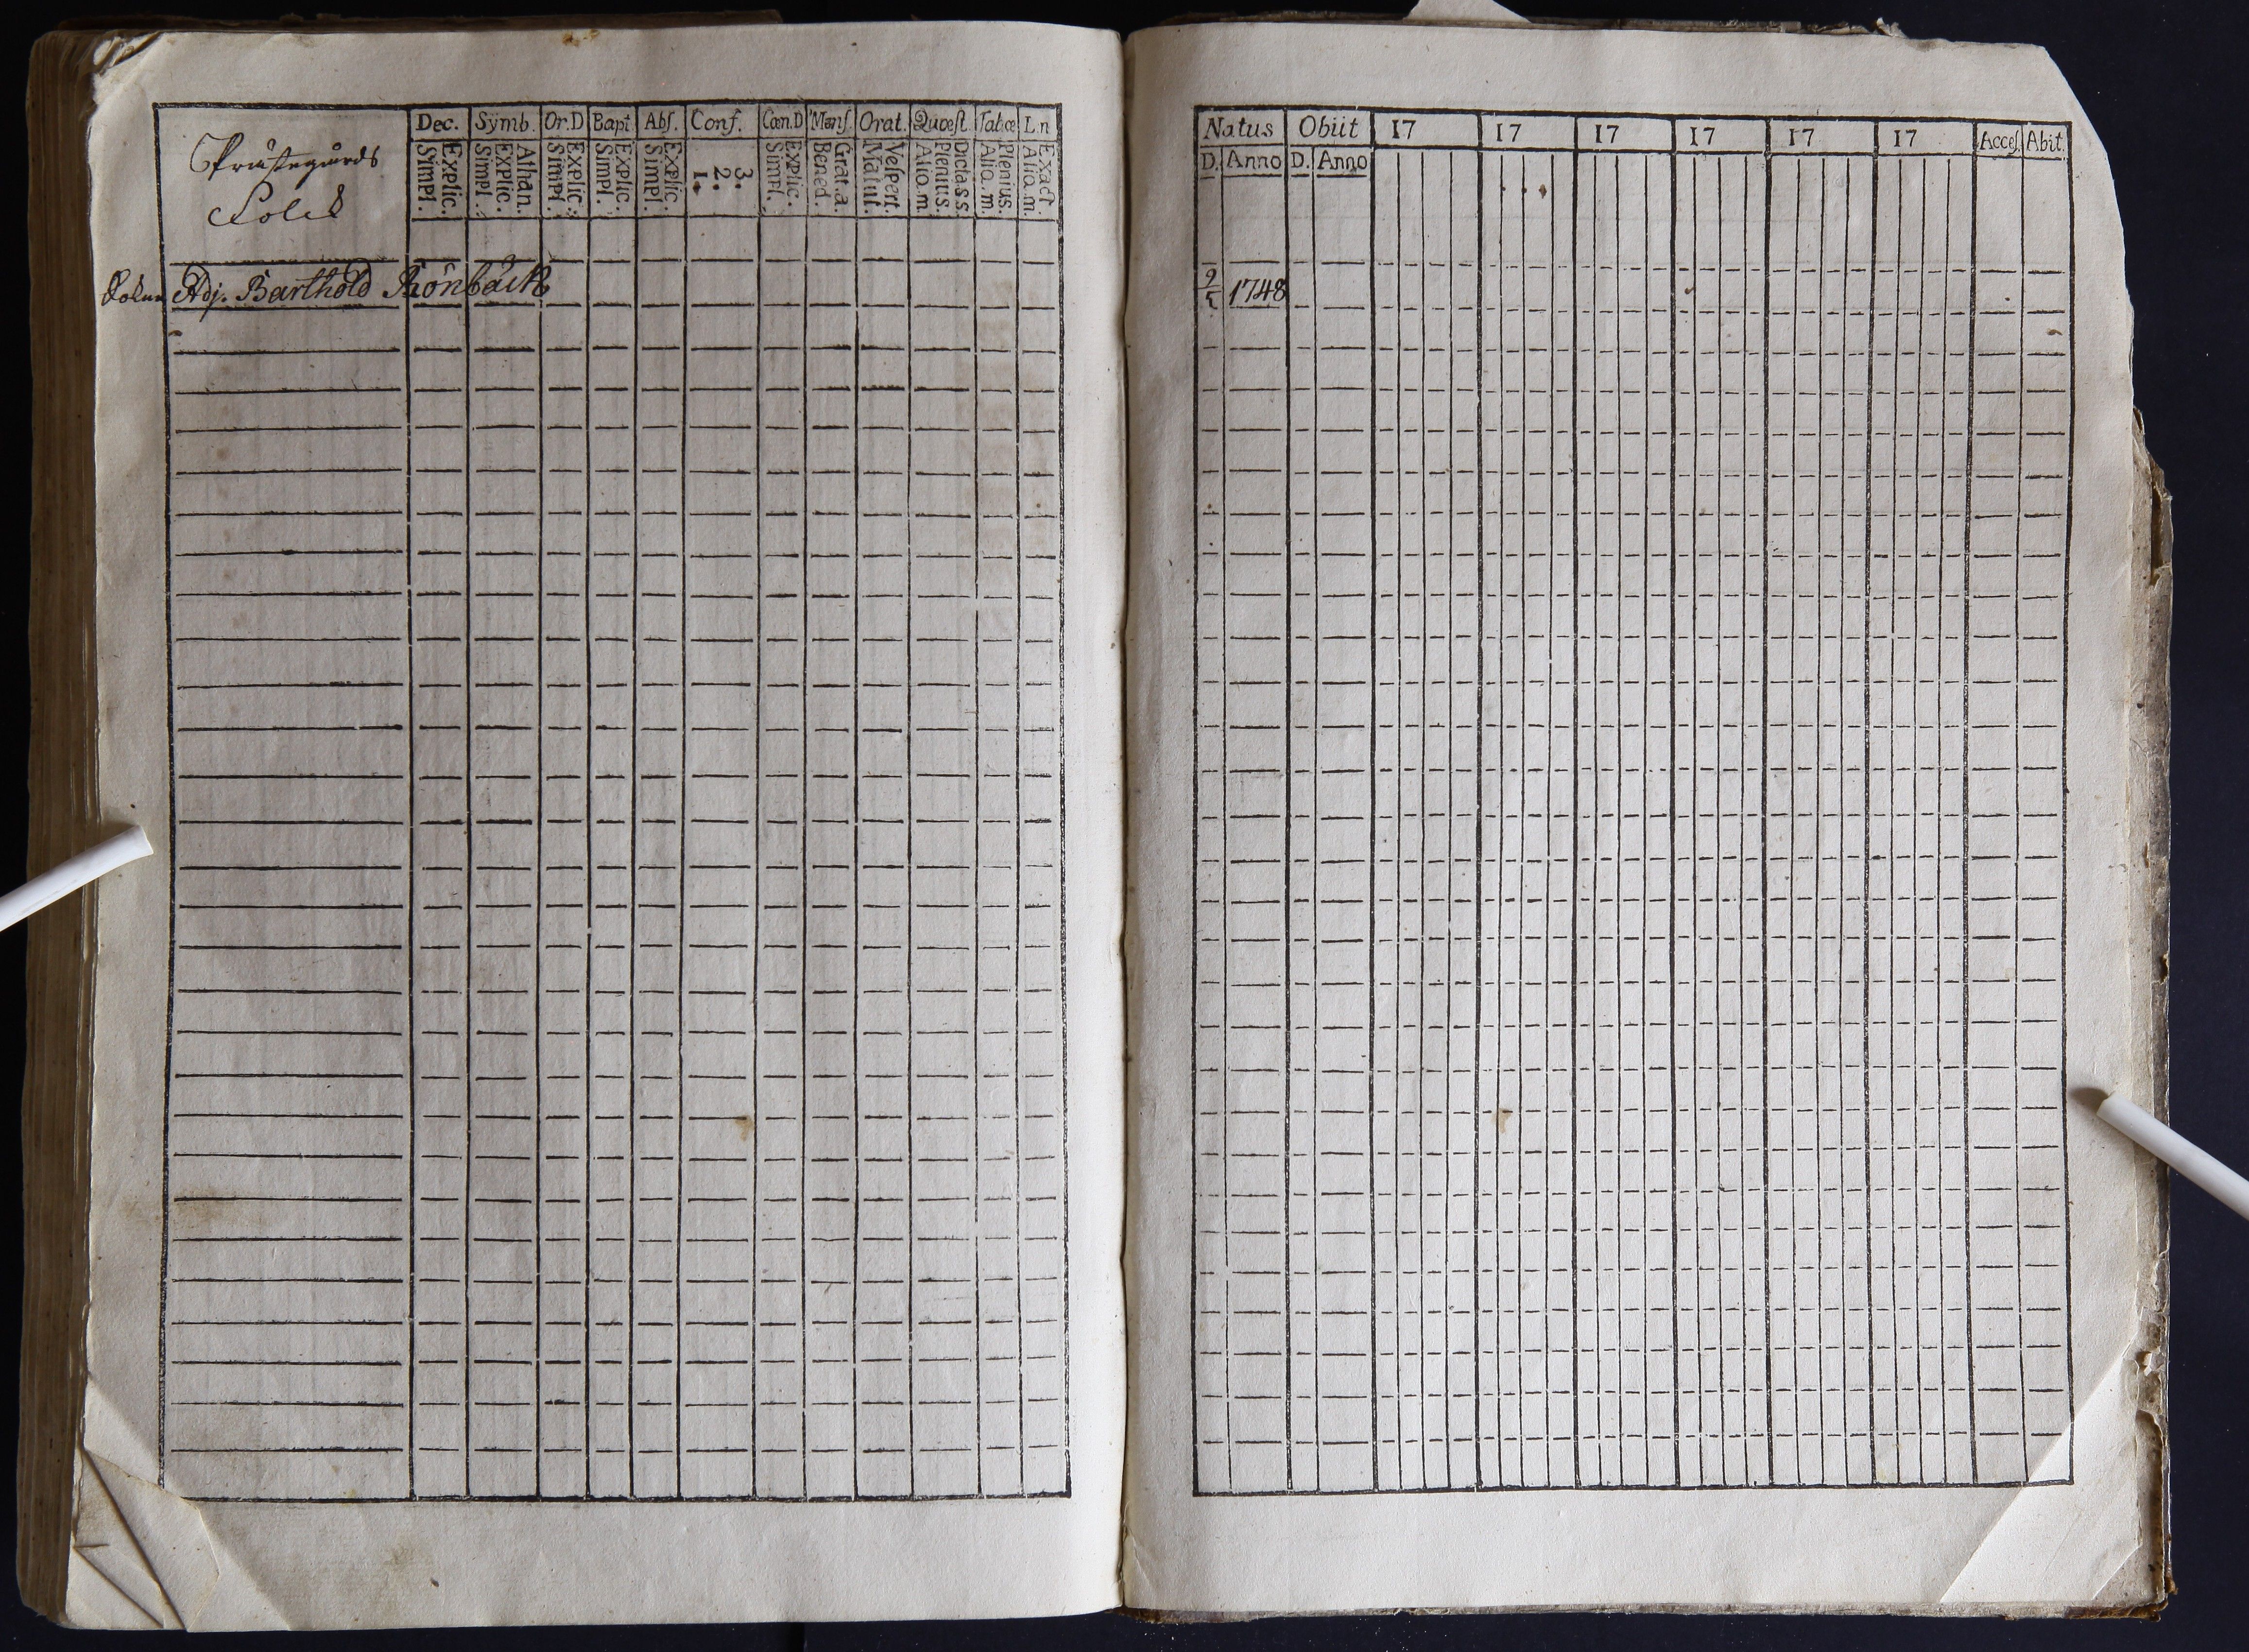 Prästegårds
Folck
Dec. Symb. Or.D Bapt. Abſ. Conf. Cœn.D Menſ. Orat. Quæſt. Tab.œ L.n
Explic. Simpl. Athan. Explic. Simpl. Explic. Simpl. Explic. Simpl. Explic. Simpl. 3. 2. 1. Explic. Simpl. Grat.a. Bened. Veſpert. Matut. Dicta.s s. Plenius. Alio.m. Plenius. Alio.m. Exact. Alio.m.
Adj. Barthold Rönbäck
Natus Obiit 17 17 17 17 17 17 Acceſ. Abit.
D. Anno D. Anno
9/5 1748